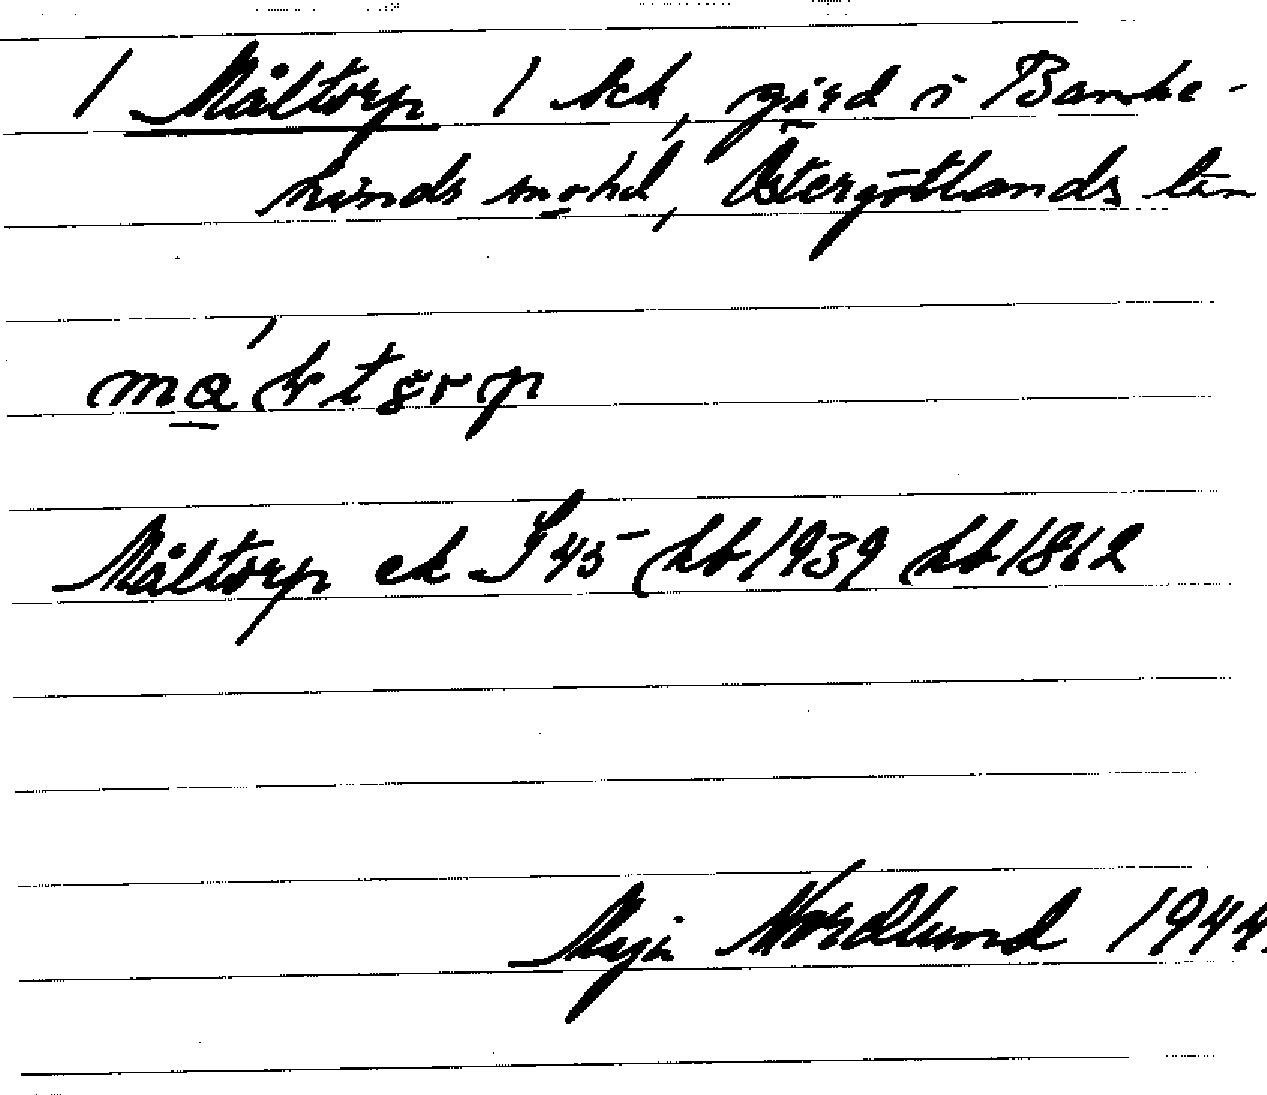 1 Måltorp 1 sck, gård i Banke-
kinds sn o hd, Östergötlands län
Måltorp ek S 45 Jbb 1939 Jbb 1862
Maja Nordlund 1944.